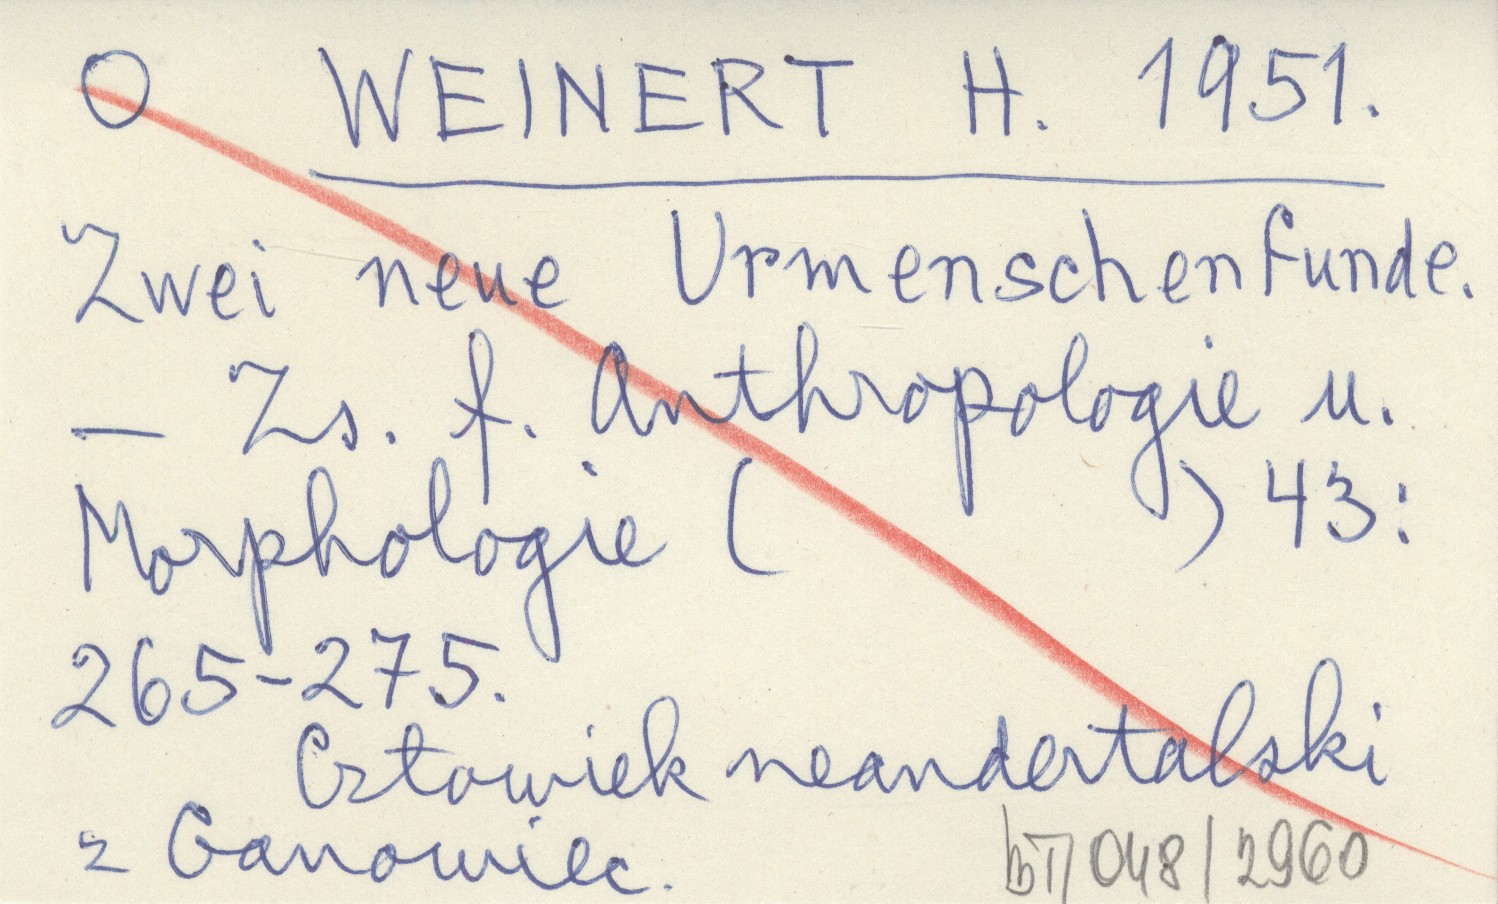 O WEINERT H. 1951.
Zwei neue Urmenschenfunde.
— Zs. f. Anthropologie u.
Morphologie ( ) 43:
265-275.
Człowiek neandertalski
z Ganowiec.
bT/048/2960